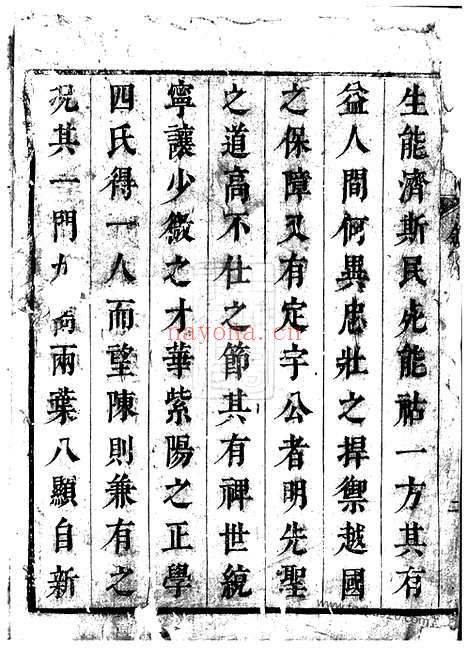 生能濟斯民死能祜一方其有
益人間何異忠壯之捍禦越國
之保障又有定宇公者明先聖
之道高不仕之節其有裨世統
寧讓少微之才華紫陽之正學
四氏得一人而望陳則兼有之
况其一門九 兩葉八顯自新
nayona.cn